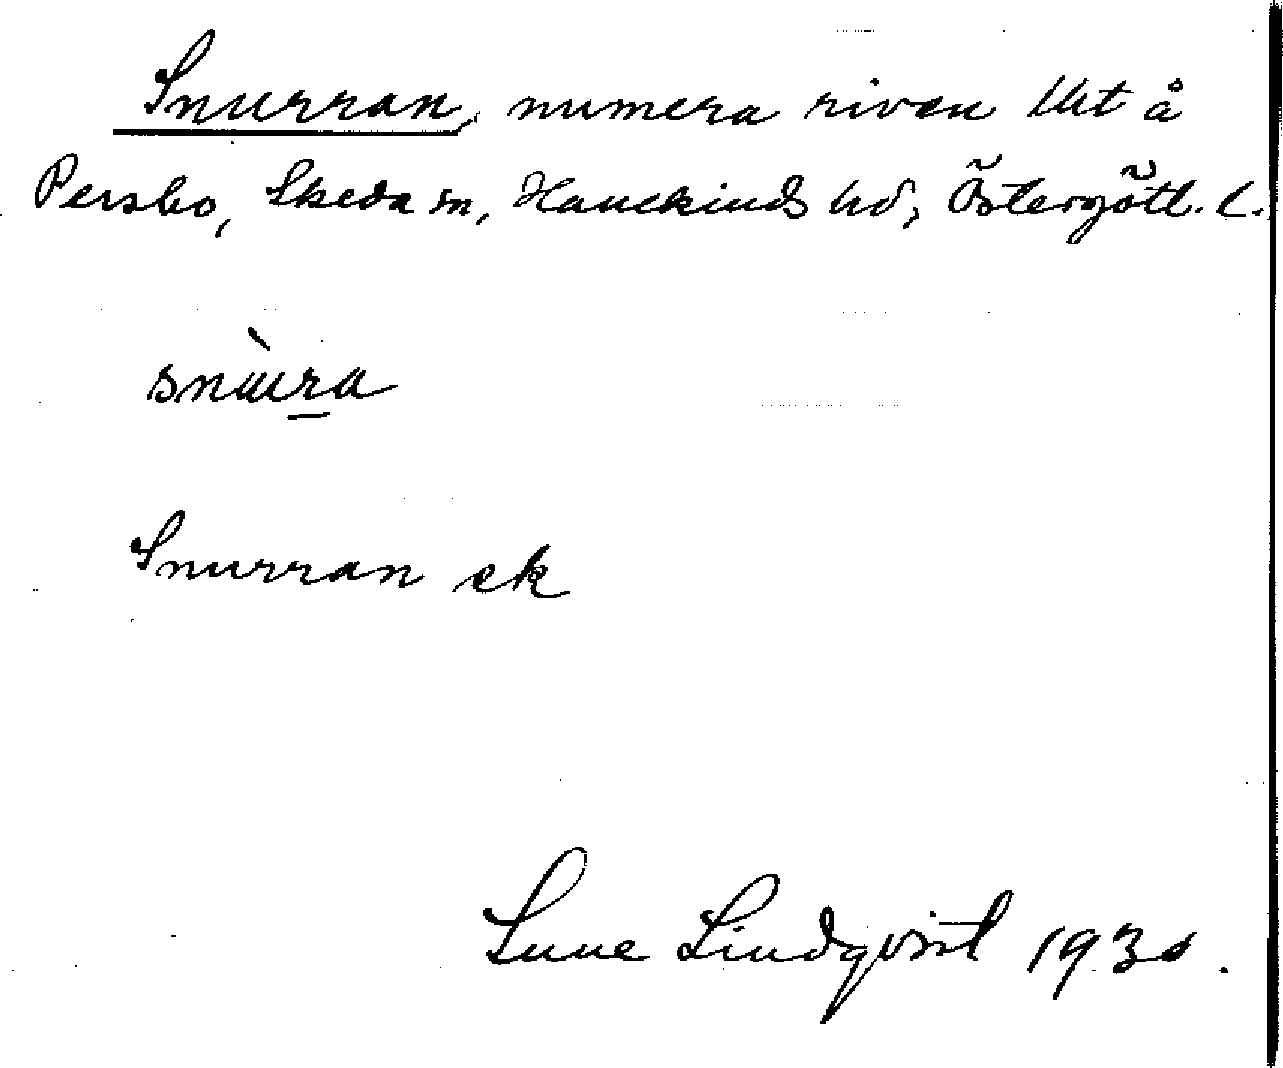 Snurran, numera riven lht å
Persbo, Skeda sn, Hanekinds hd, Östergötl. l.
snura
Snurran ek
Sune Lindqvist 1930.